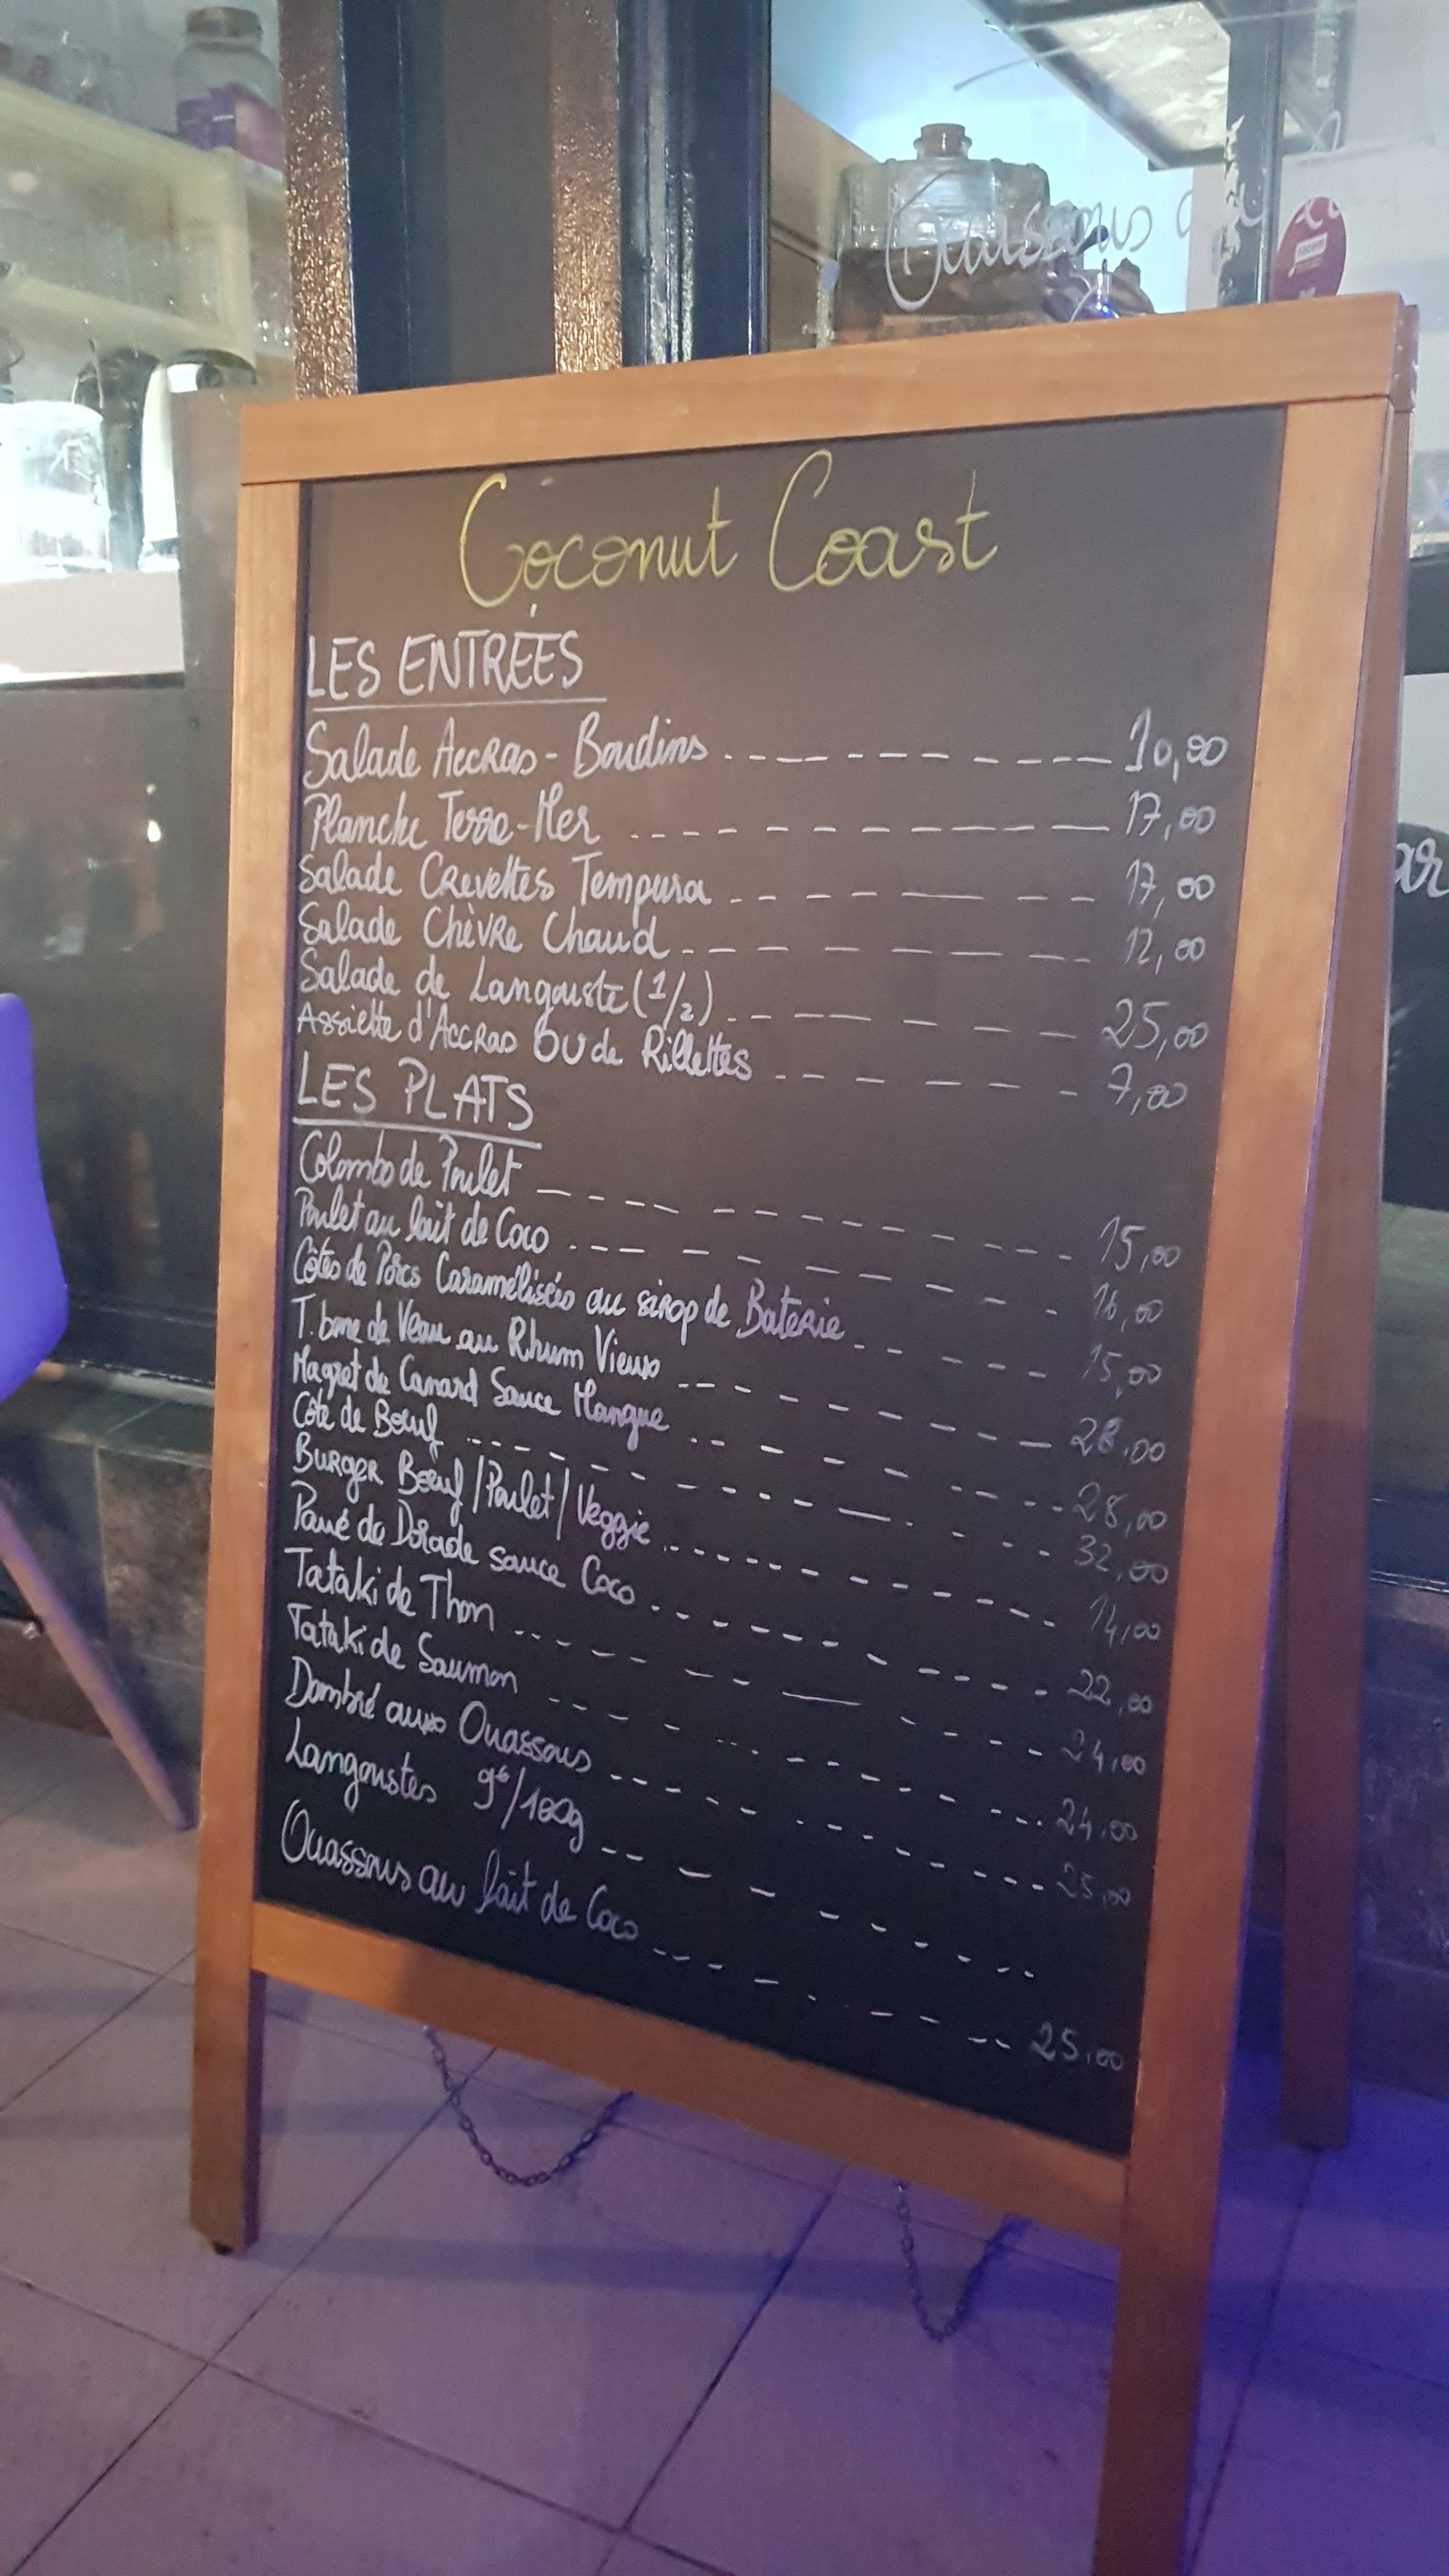 Ouassous
Coconut Coast
LES ENTRÉES
Salade Accras - Boudins 10,00
Planche Terre-Mer 17,00
Salade Crevettes Tempura 17,00
Salade Chèvre Chaud 12,00
Salade de Langouste (1/2) 25,00
Assiette d'Accras OU de Rillettes 7,00
LES PLATS
Colombo de Poulet 15,00
Poulet au lait de Coco 16,00
Côtes de Porcs Caramélisées au sirop de Baterie 15,00
T.bone de Veau au Rhum Vieux 28,00
Magret de Canard Sauce Mangue 28,00
Côte de Boeuf 32,00
Burger Boeuf/Poulet/Veggie 14,00
Pavé de Dorade sauce Coco 22,00
Tataki de Thon 24,00
Tataki de Saumon 24,00
Dombré aux Ouassous 25,00
Langoustes 9€/100g
Ouassous au lait de Coco 25,00